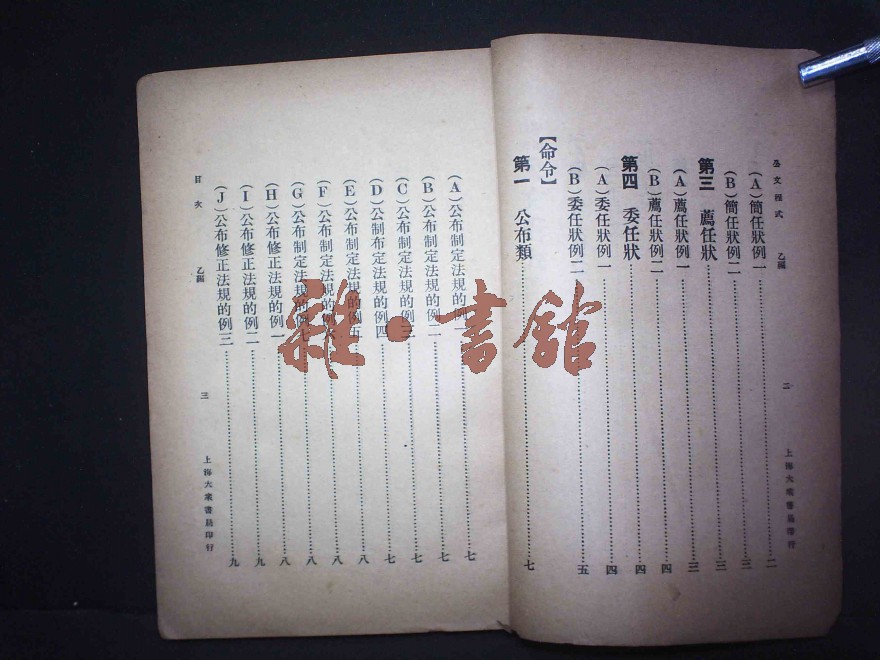 公文程式 乙編 二 上海大衆書局印行
(A)簡任狀例一 二
(B)簡任狀例二 三
第三 薦任狀 三
(A)薦任狀例一 三
(B)薦任狀例二 四
第四 委任狀 四
(A)委任狀例一 四
(B)委任狀例二 五
【命令】
第一 公布類 七
(A)公布制定法規的例一 七
(B)公布制定法規的例二 七
(C)公布制定法規的例三 七
(D)公制布定法規的例四 七
(E)公布制定法規的例五 八
(F)公布制定法規的例六 八
(G)公布制定法規的例七 八
(H)公布修正法規的例一 八
(I)公布修正法規的例二 九
(J)公布修正法規的例三 九
目次 乙編 三 上海大衆書局印行
雜·書館